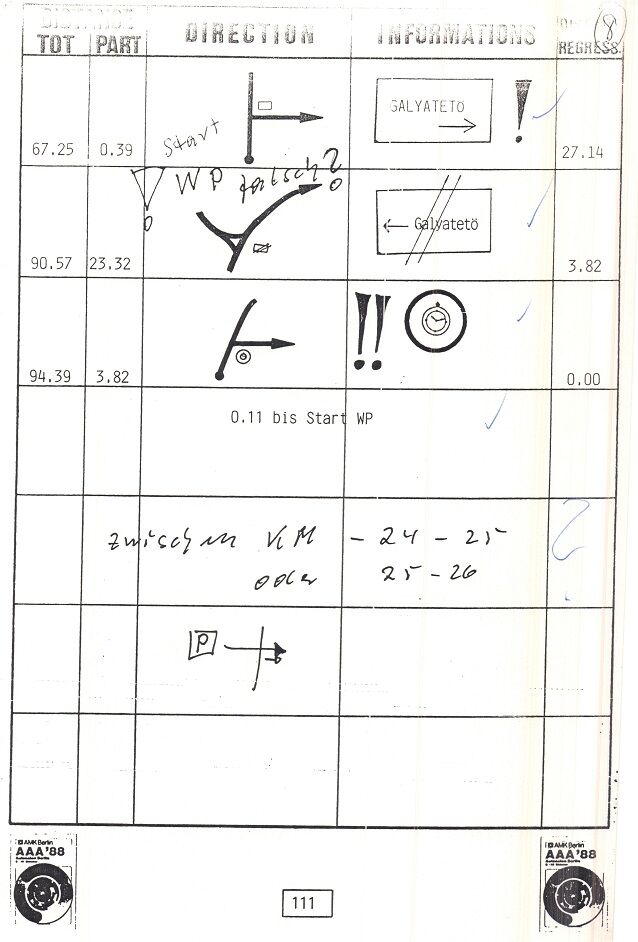 DISTANCE
TOT PART DIRECTION INFORMATIONS REGRESS.
8
GALYATETÖ
!
Start
67.25 0.39 27.14
WP falsch?
Galyatetö
90.57 23.32 3.82
!!
94.39 3.82 0.00
0.11 bis Start WP
zwischen KM - 24 - 25
oder 25 - 26
?
P
AMK Berlin
AAA'88
111
AMK Berlin
AAA'88